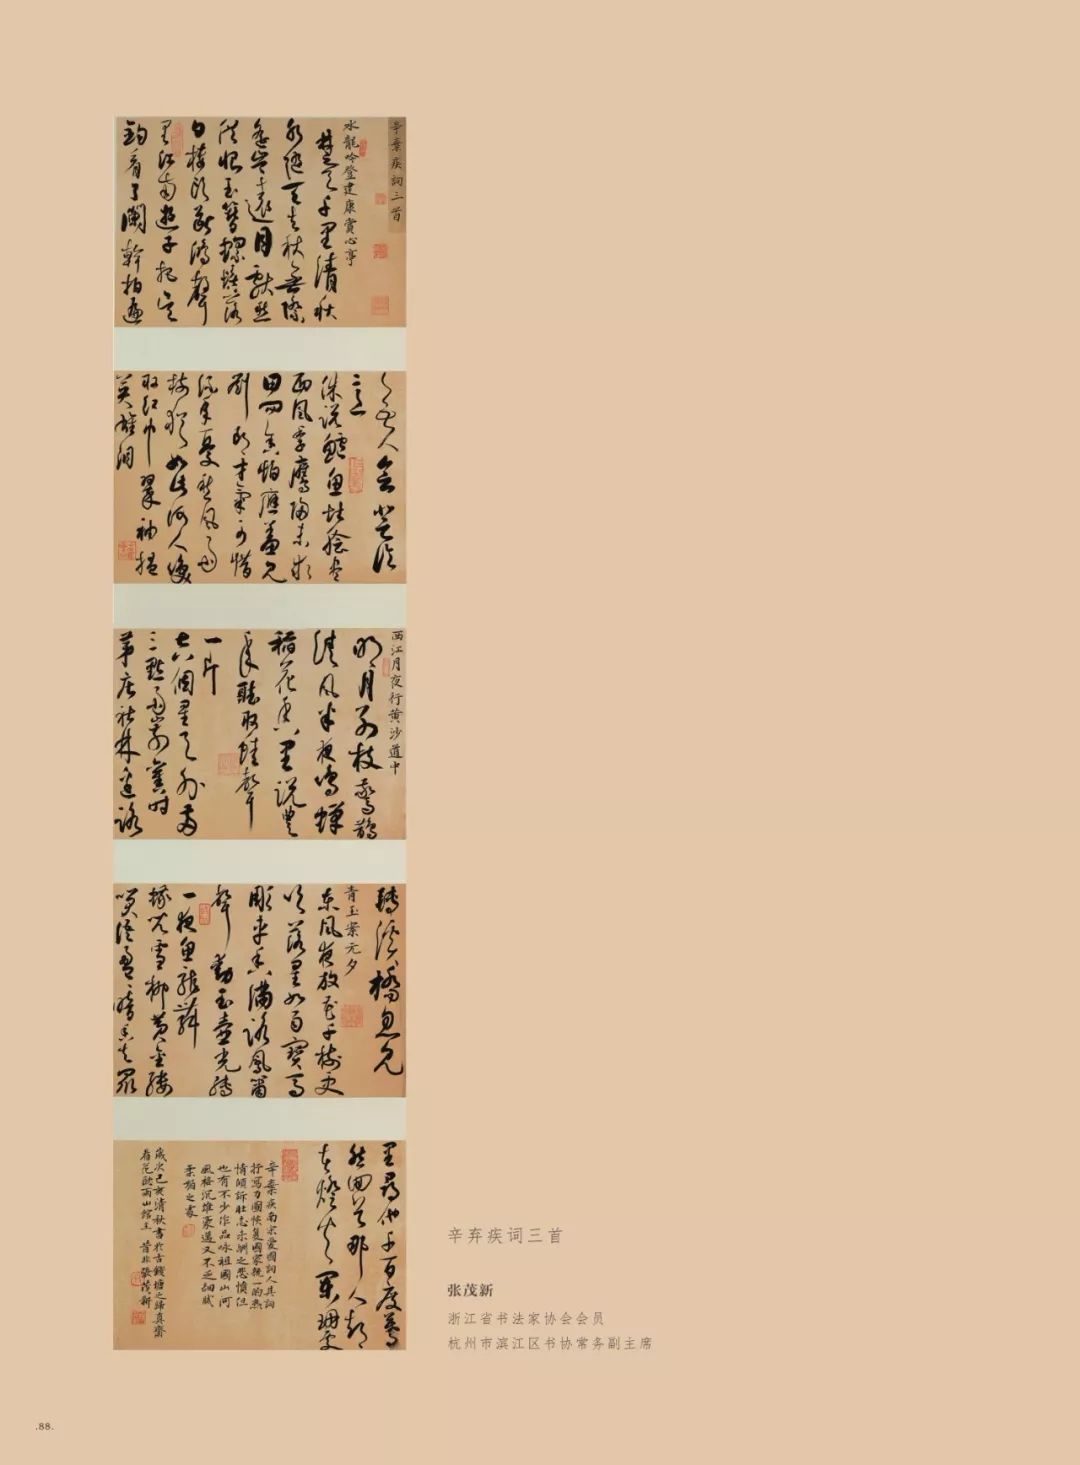 辛棄疾詞三首
水龍吟登建康賞心亭
楚天千里清秋
水隨天去秋無際
遙岑遠目獻愁
供恨玉簪螺髻落
日樓頭斷鴻聲
里江南遊子把吳
鈎看了闌幹拍遍
無人會登臨
意
休說鱸魚堪膾盡
西風季鷹歸未求
田問舍怕應羞見
劉郎才氣可惜
流年憂愁風雨
樹猶如此何人喚
取紅巾翠袖揾
英雄淚
西江月夜行黄沙道中
明月别枝驚鵲
清風半夜鳴蟬
稻花香里說豊
年聽取蛙聲
一片
七八個星天外兩
三點雨山前舊時
茅店社林邊路
轉溪橋忽見
青玉案元夕
東風夜放花千樹更
吹落星如雨寶馬
雕車香滿路鳳簫
聲動玉壺光轉
一夜魚龍舞
蛾兒雪柳黄金縷
笑語盈盈暗香去眾
里尋他千百度驀
然回首那人却
在燈火闌珊處
辛棄疾南宋愛國詞人其詞
抒寫力圖恢復國家統一的熱
情傾訴壯志未酬之悲憤但
也有不少作品咏祖國山河
風格沉雄豪邁又不乏細膩
柔媚之處
歲次己亥清秋書於古錢塘之歸真齋
看花聽雨山館主 張茂新
辛弃疾词三首
张茂新
浙江省书法家协会会员
杭州市滨江区书协常务副主席
.88.